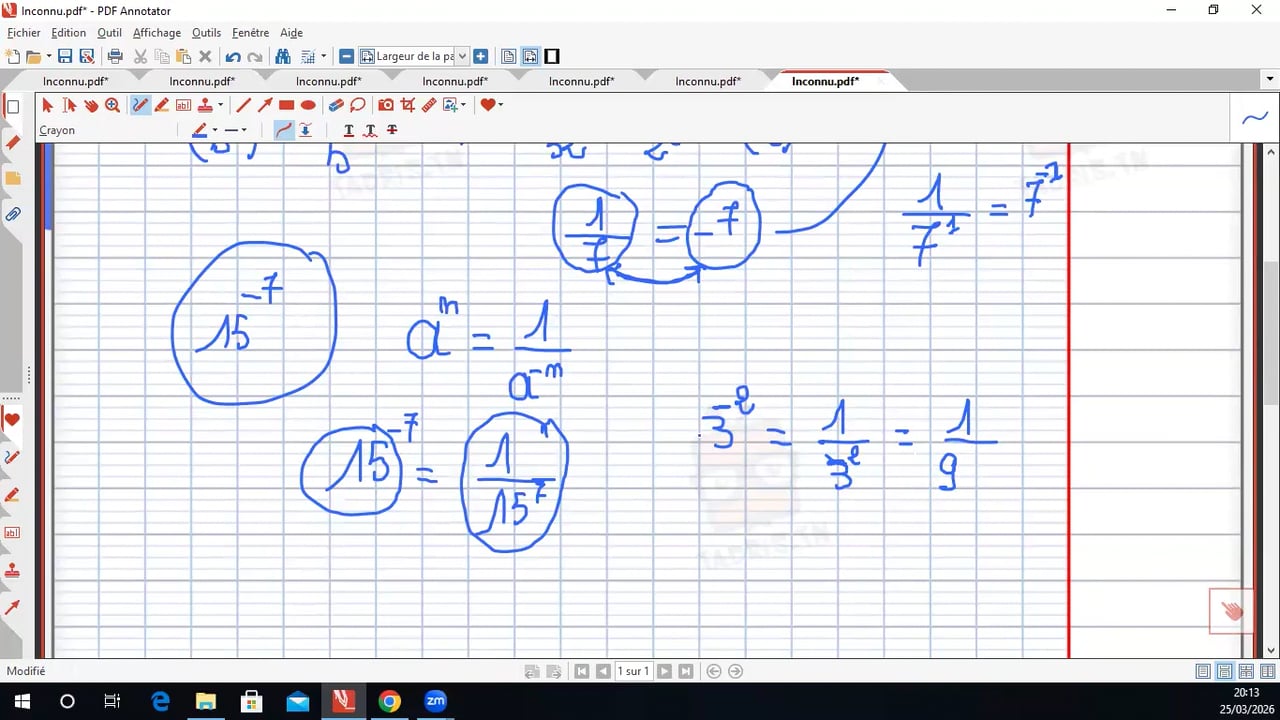 Inconnu.pdf* - PDF Annotator
Fichier Edition Outil Affichage Outils Fenêtre Aide
Largeur de la pa
Inconnu.pdf* Inconnu.pdf* Inconnu.pdf* Inconnu.pdf* Inconnu.pdf* Inconnu.pdf* Inconnu.pdf*
Crayon
1/7 = -7
1/7¹ = 7⁻¹
15⁻⁷
aⁿ = 1/a⁻ⁿ
15⁻⁷ = 1/15⁷
3⁻² = 1/3² = 1/9
TADRIS.TN
Modifié
1 sur 1
zm
20:13
25/03/2026